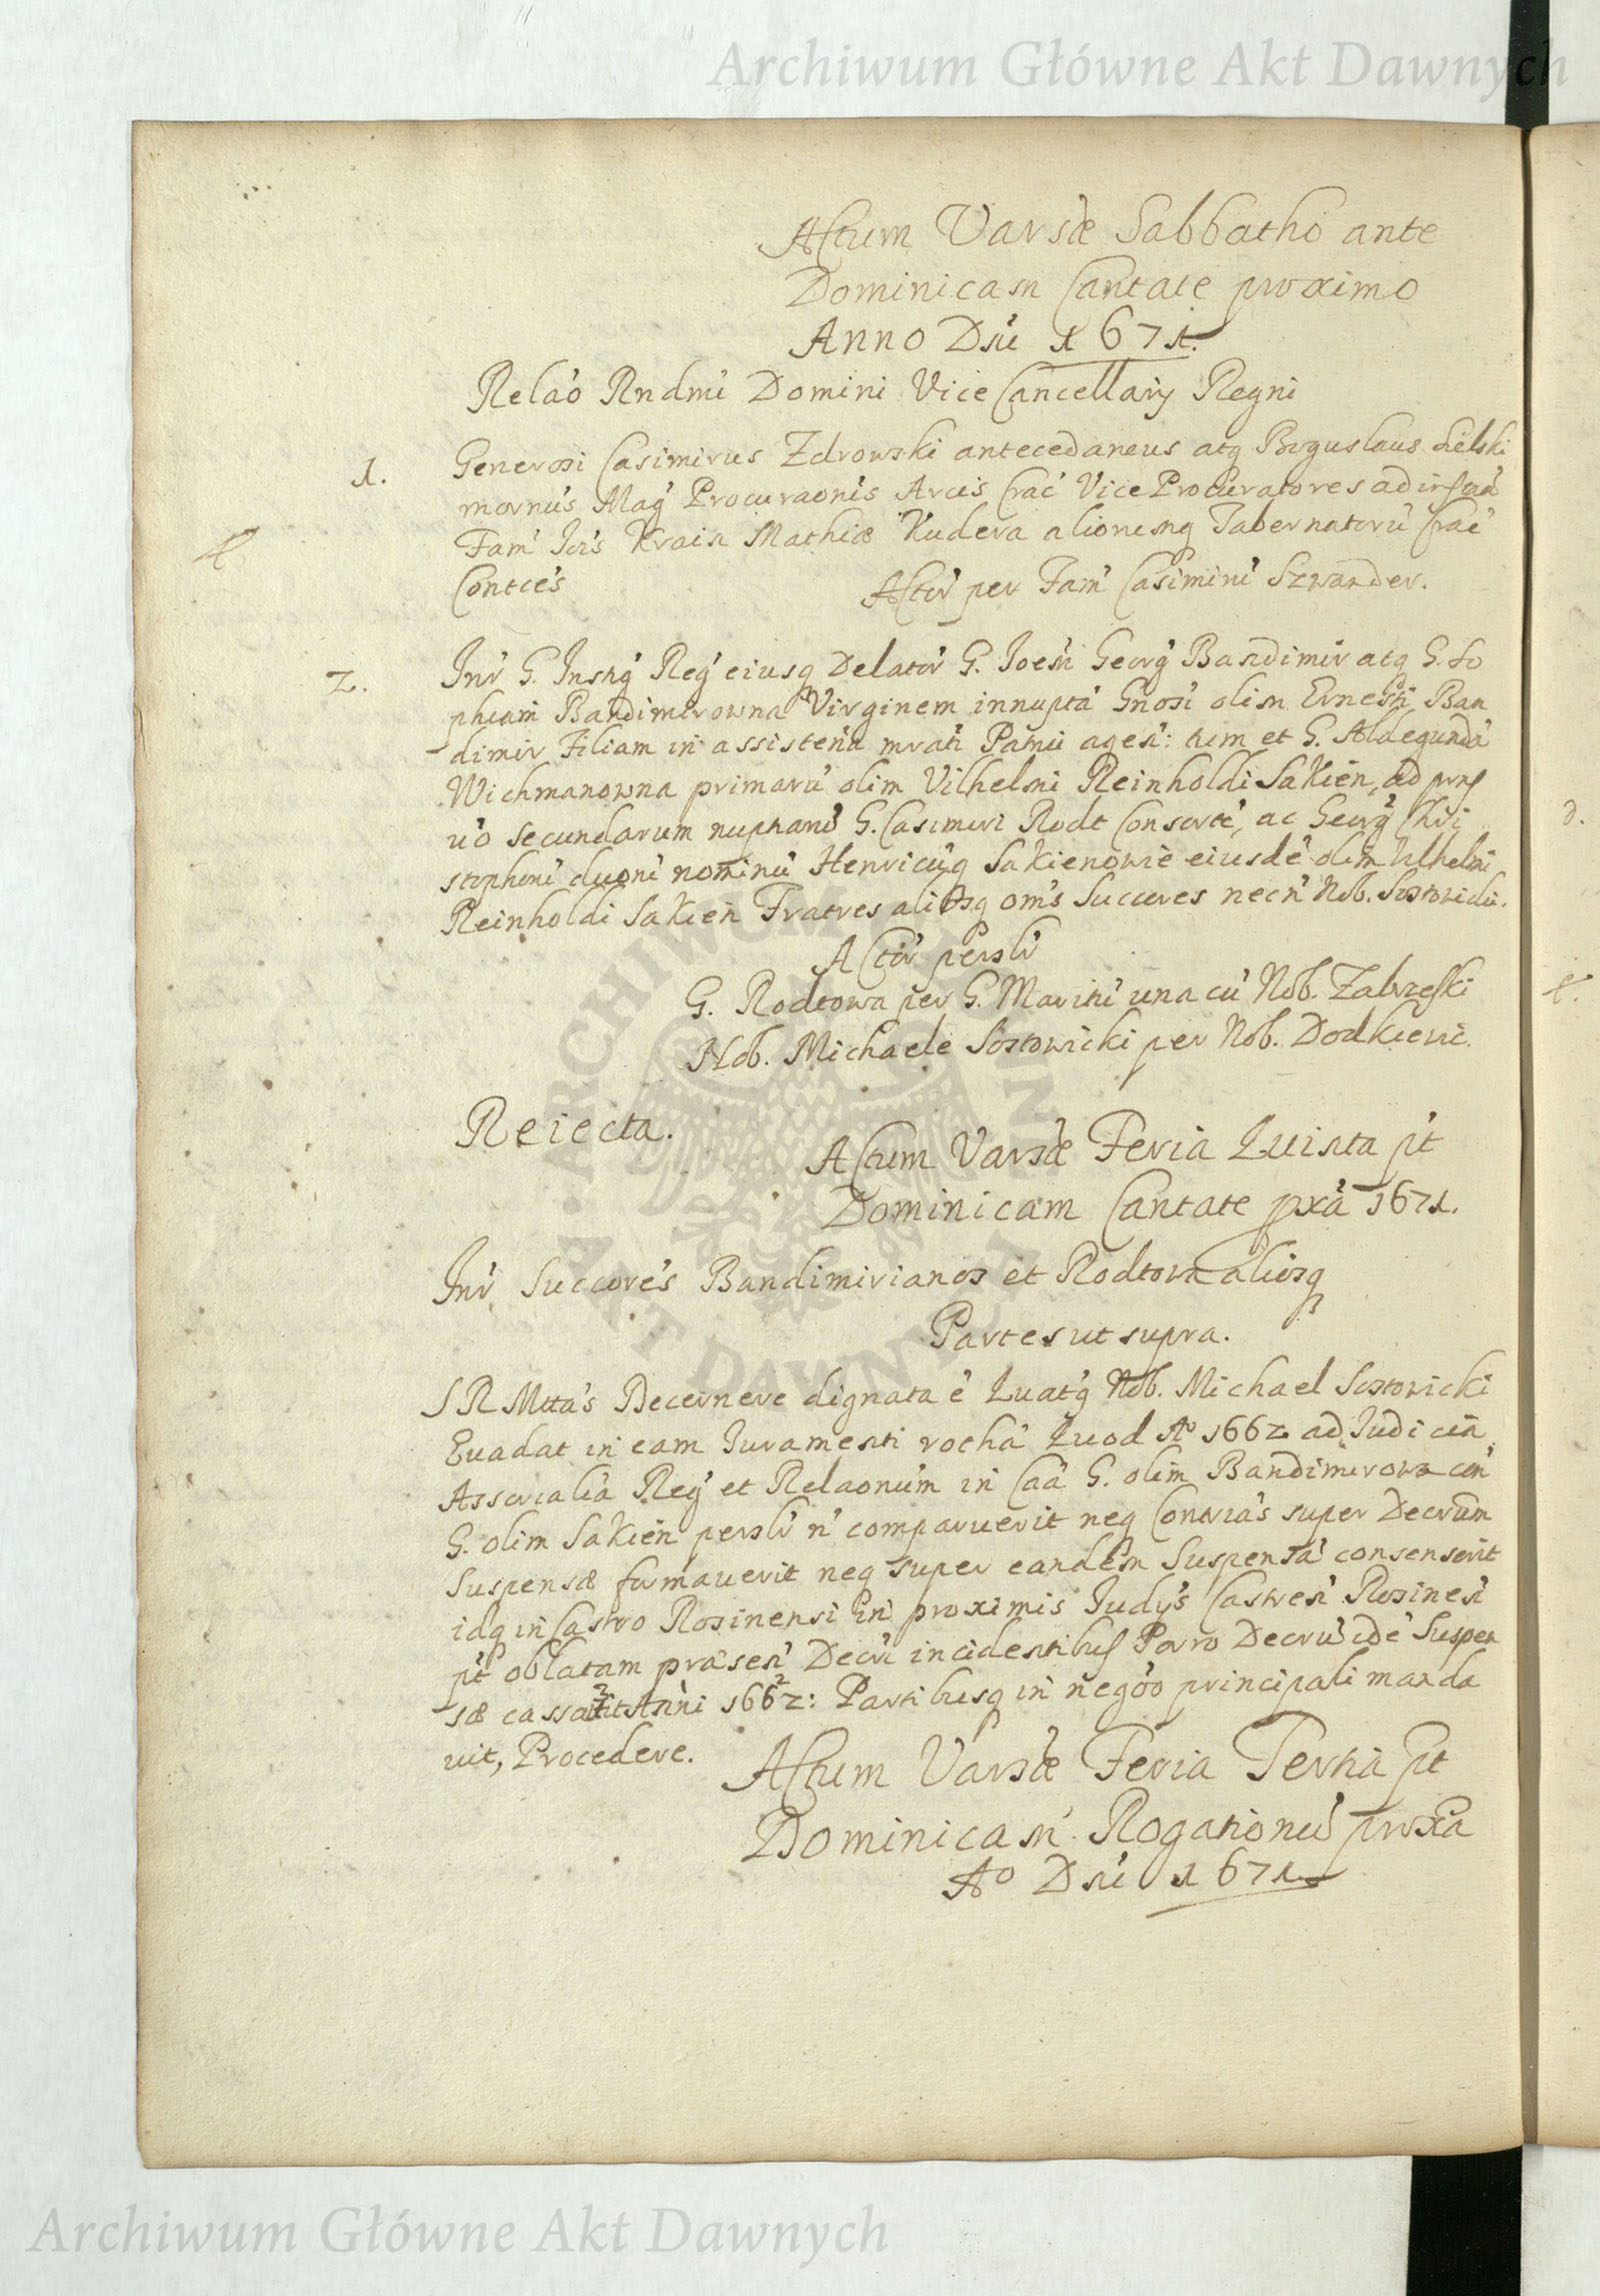 Archiwum Główne Akt Dawnych
Actum Varsæ Sabbatho ante
Dominicam Cantate proximo
Anno Dni 1671.
Relao Rndmi Domini Vice Cancellarij Regni
1. Generosi Casimirus Zdrowski antecedaneus atq Boguslaus
mornus Mag Procuraonis Arcis Crac Vice Procuratores ad
Fam Krain Mathiæ Kudera aliorumq Tabernatoru Crac
Contces Actor per Fam Casimiri Szwander.
2. Inr G. Instig Reg eiusq Delator G. Joem Georg Bandimir atq G. So
phiam Bandimirowna Virginem innupta Gnosi olim Ernesti Ban
dimir Filiam in assistena mrati Patrui agen: tum et G. Aldegunda
Wichmanowna primaru olim Vilhelmi Reinholdi Sakien, ad prns
uo secundarum nuptiaru G. Casimiri Rodt Consorte, ac Georg Chri
stophoru duoru nominu Henricuq Sakienowie eiusde olim Vilhelmi
Reinholdi Sakien Fratres aliosq oms Succeres necn Nob. Sostowicki.
Actor persolr
G. Rodtowa per G. Marini una cu Nob. Zabrzeski
Nob. Michaele Sostowicki per Nob. Dodkiewic.
Reiecta.
Actum Varsæ Feria Quinta pt
Dominicam Cantate pxa 1671.
Inr Succores Bandimirianos et Rodtowa aliosq
Partes ut supra.
S R Mttas Decernere dignata e Quatq Nob. Michael Sostowicki
Evadat in eam Juramenti rotha Quod Ao 1662 ad Judicia
Assorialia Reg et Relaonum in Caa G. olim Bandimirowa con
G. olim Sakien persolr n comparuerit neq Contrias super Decrum
Suspensæ formauerit neq super eandem Suspensa consenserit
idq in Castro Rosinensi in proximis Judys Castren Rosinen
pt oblatam præsen Decri incidentibus Porro Decru ide Suspen
sæ cassavit Anni 1662: Partibusq in negoo principali manda
uit, Procedere.
Actum Varsæ Feria Tertia pt
Dominicam Rogationu proxa
Ao Dni 1671.
Archiwum Główne Akt Dawnych